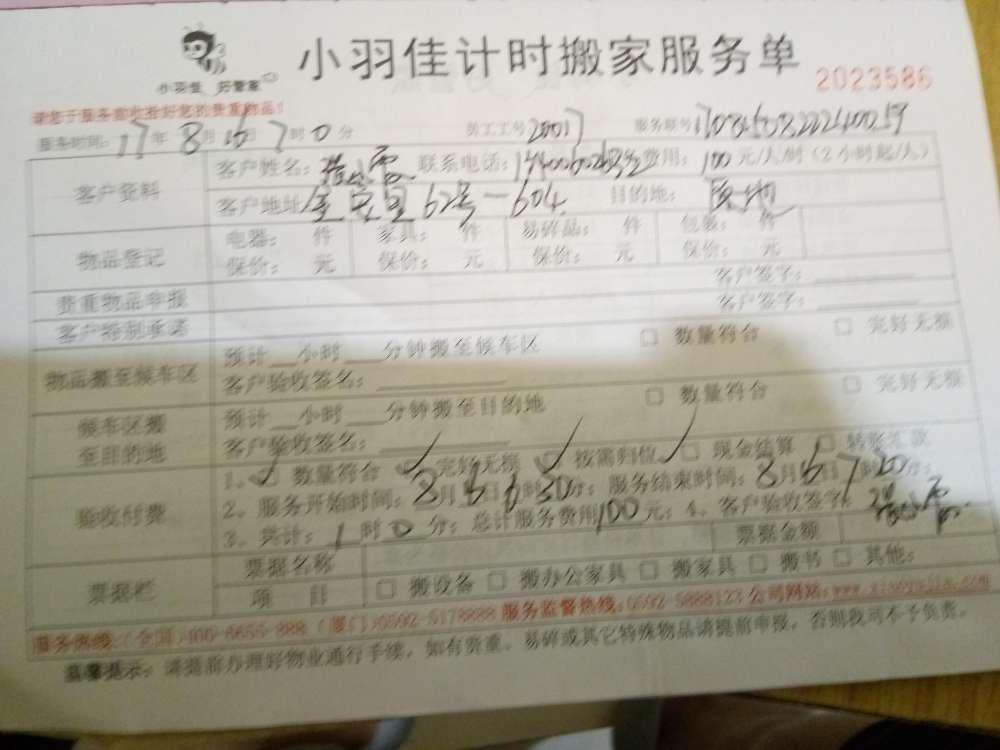 小羽佳计时搬家服务单
小羽佳 好管家
2023586
请您于服务前收捡好您的贵重物品!
服务时间: 17年 8月 16日 7时 0分 员工工号 20017 服务联号
客户资料
客户姓名: 联系电话: 费用: 100元/人/时 (2小时起/人)
客户地址 金安里 62号-604 目的地: 原地
物品登记
电器: 件 家具: 件 易碎品: 件 包裹: 件
保价: 元 保价: 元 保价: 元 保价: 元
客户签字:
贵重物品申报 客户签字:
客户特别承诺
物品搬至候车区
预计__小时___分钟搬至候车区 □ 数量符合 □ 完好无损
客户验收签名:
候车区搬至目的地
预计__小时___分钟搬至目的地 □ 数量符合 □ 完好无损
客户验收签名:
验收付费
1、☑ 数量符合 ☑ 完好无损 ☑ 按需归位 □ 现金结算 □ 转账汇款
2、服务开始时间: 8月16日6时30分; 服务结束时间: 8月16日7时30分;
3、共计: 1时0分; 总计服务费用100元; 4、客户验收签字:
票据栏
票据名称 票据金额
项目 □ 搬设备 □ 搬办公家具 □ 搬家具 □ 搬书 □ 其他:
服务热线: (全国)400-6655-888 (厦门)0592-5178888 服务监督热线: 0592-5888123 公司网站: www.xiaoyujia.com
温馨提示: 请提前办理好物业通行手续, 如有贵重、易碎或其它特殊物品请提前申报, 否则我司不予负责。